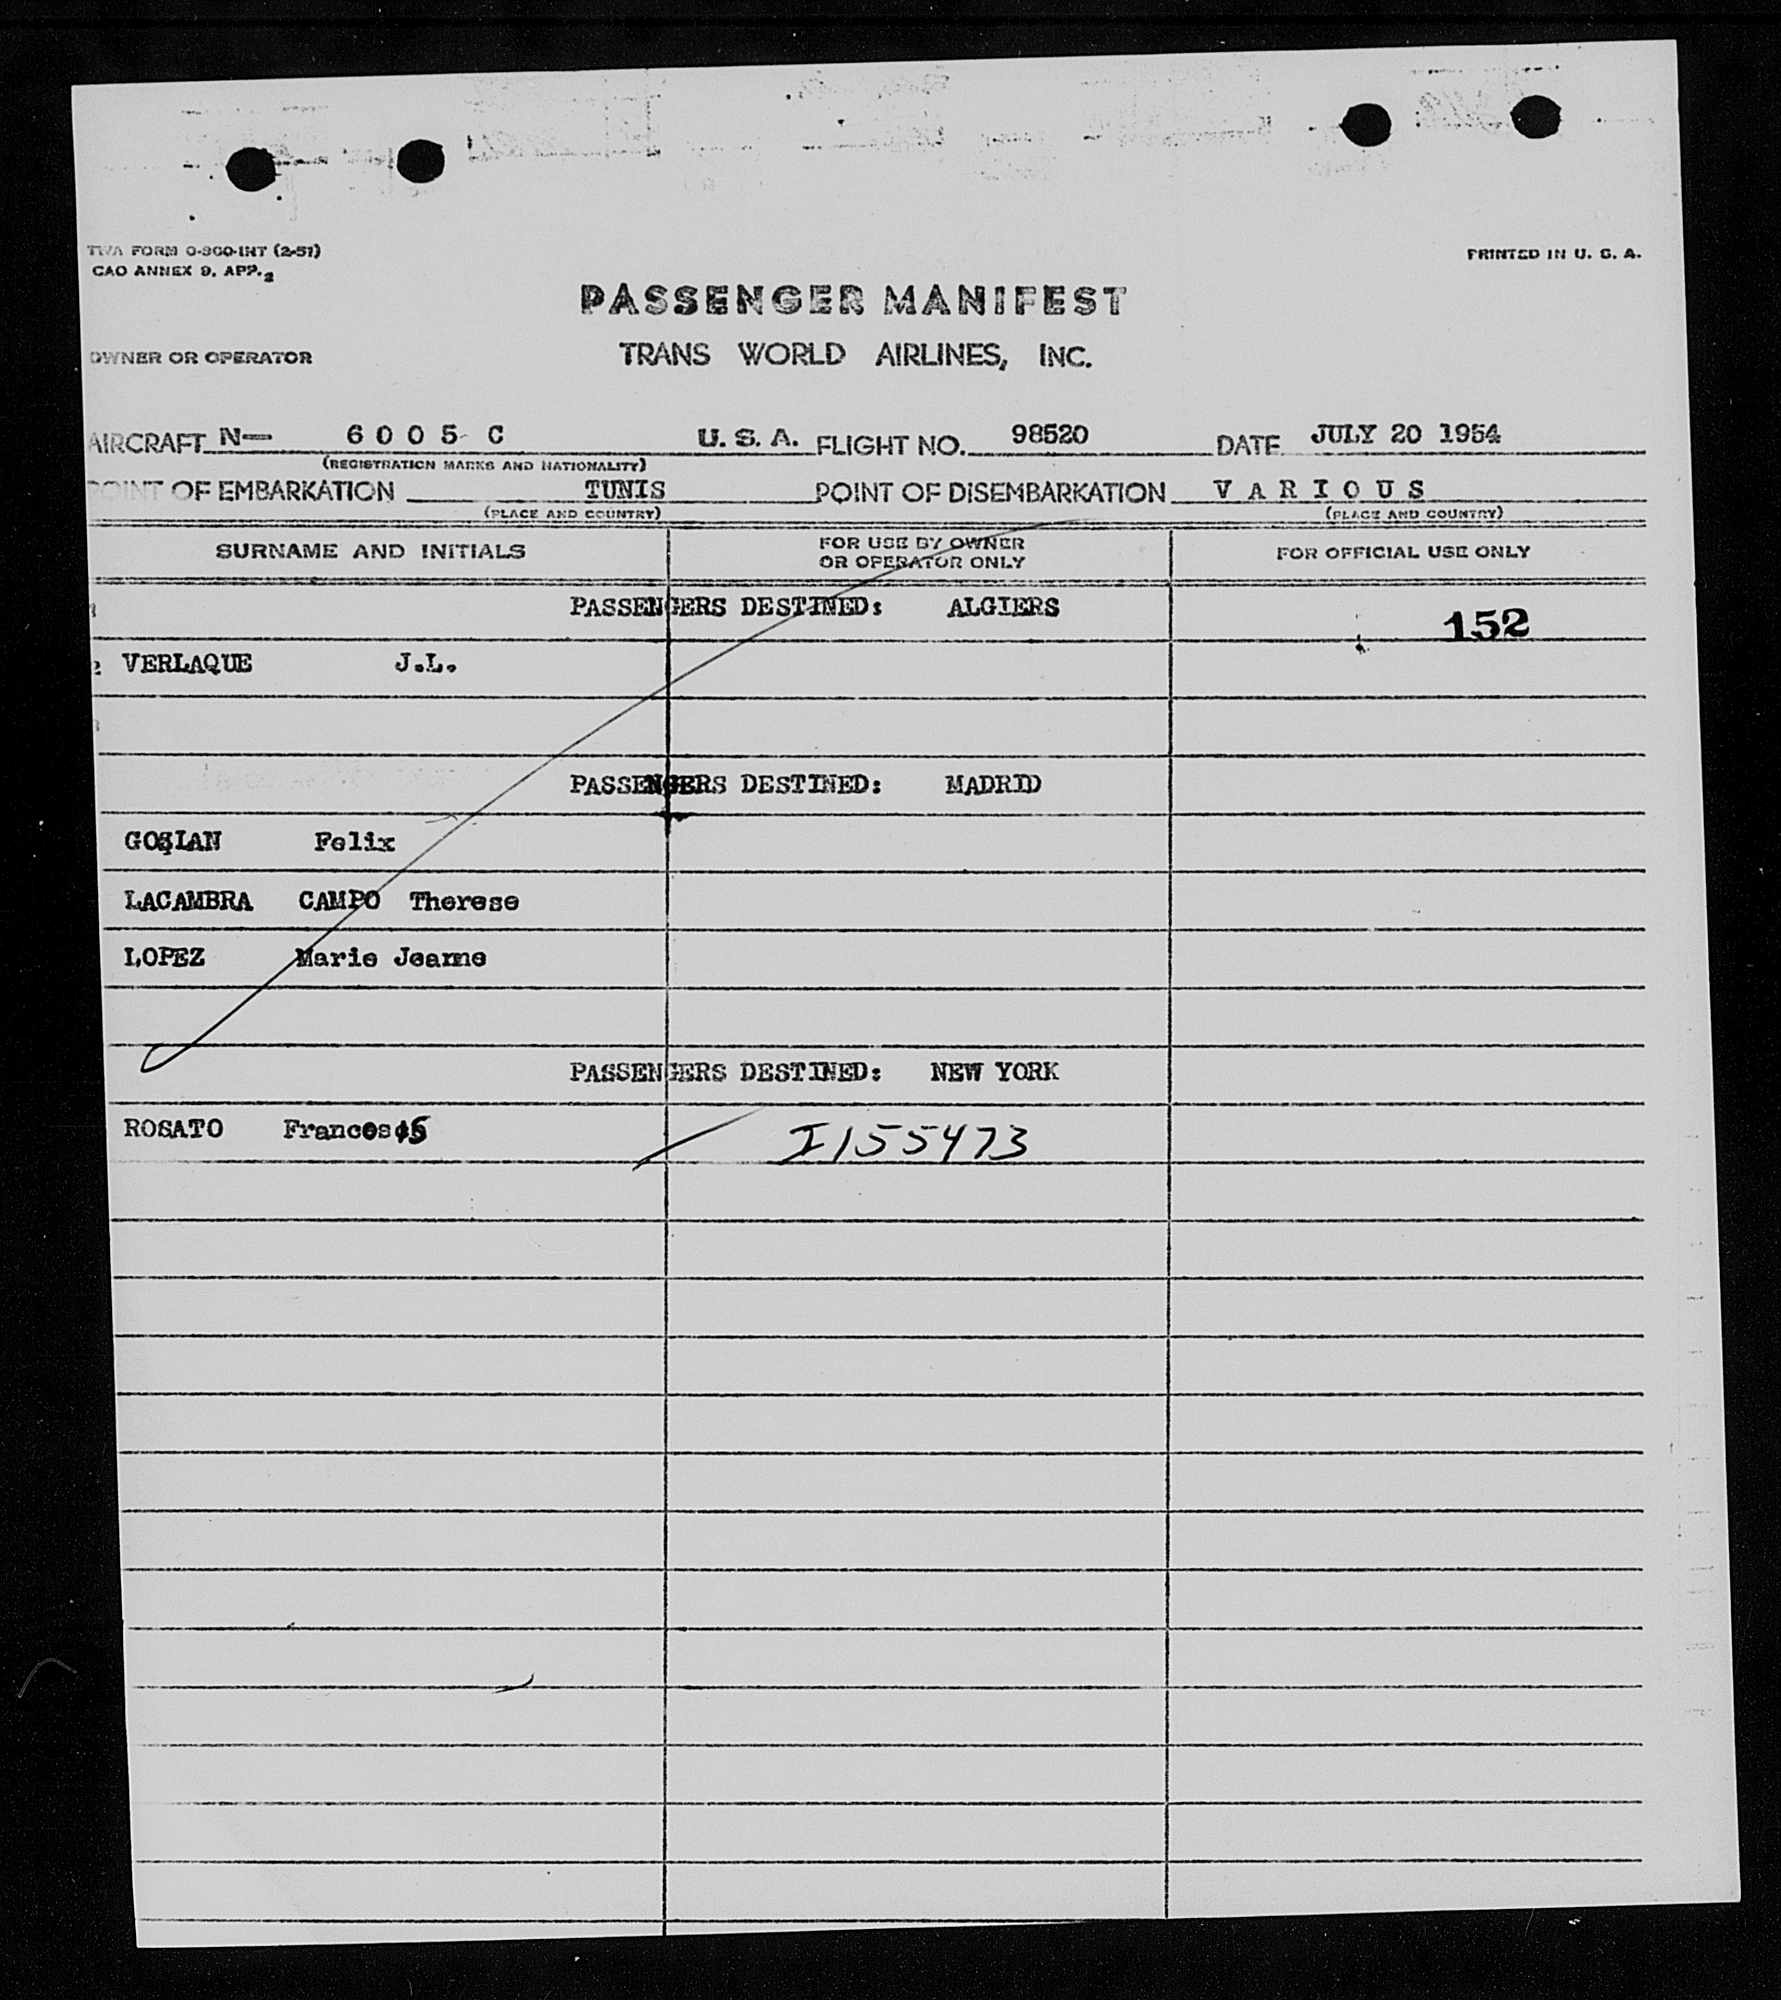 TWA FORM O-300-INT (2-51)
CAO ANNEX 9, APP. 2
PRINTED IN U. S. A.
PASSENGER MANIFEST
OWNER OR OPERATOR TRANS WORLD AIRLINES, INC.
AIRCRAFT N— 6 0 0 5 C U. S. A. FLIGHT NO. 98520 DATE JULY 20 1954
(REGISTRATION MARKS AND NATIONALITY)
POINT OF EMBARKATION TUNIS POINT OF DISEMBARKATION V A R I O U S
(PLACE AND COUNTRY) (PLACE AND COUNTRY)
SURNAME AND INITIALS FOR USE BY OWNER OR OPERATOR ONLY FOR OFFICIAL USE ONLY
PASSENGERS DESTINED: ALGIERS 152
2 VERLAQUE J.L.
PASSENGERS DESTINED: MADRID
GOSLAN Felix
LACAMBRA CAMPO Therese
LOPEZ Marie Jeanne
PASSENGERS DESTINED: NEW YORK
ROSATO I155473